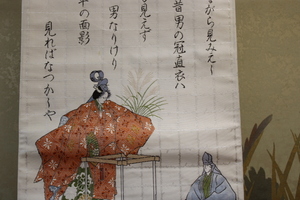 がら見みえし
昔男の冠直衣ハ
見えず
男なりけり
の面影
見ればなつかしや